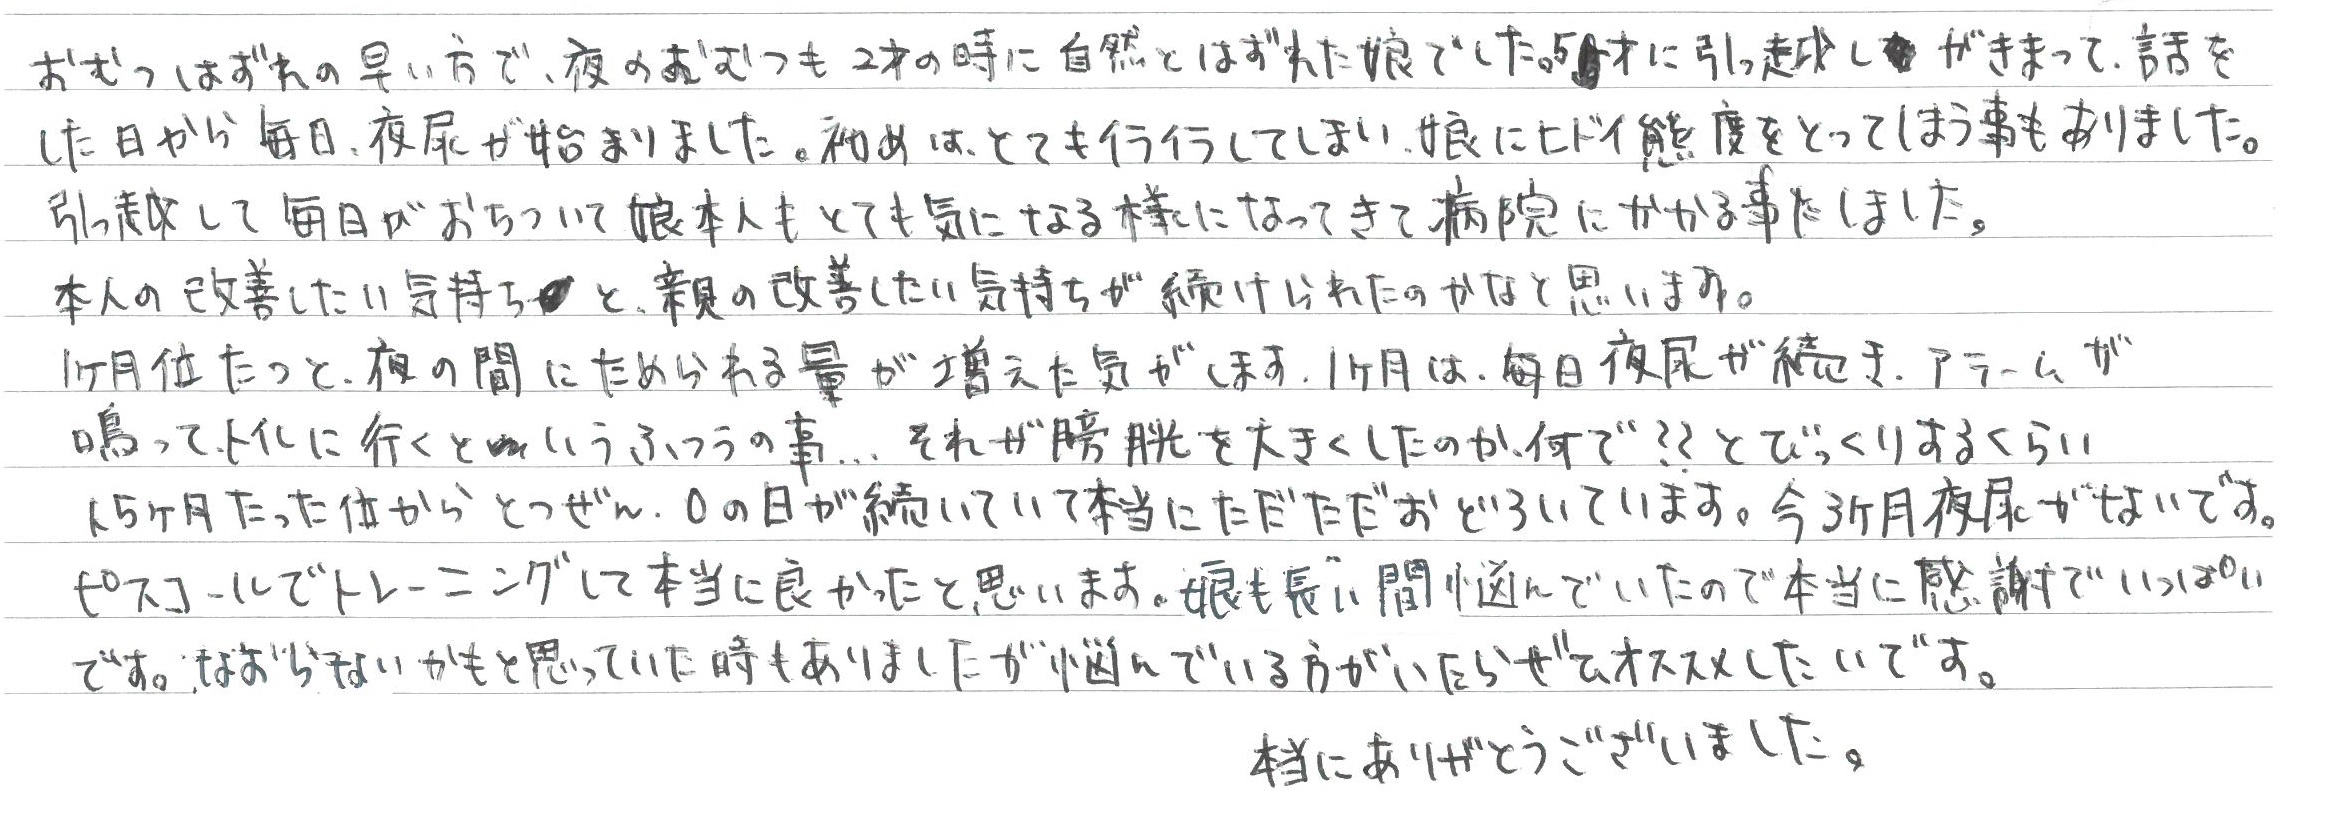 おむつはずれの早い方で、夜のおむつも2才の時に自然とはずれた娘でした。5才に引っ越しがきまって、話を
した日から毎日、夜尿が始まりました。初めは、とてもイライラしてしまい、娘にヒドイ態度をとってしまう事もありました。
引っ越して毎日がおちついて娘本人もとても気になる様になってきて病院にかかる事にしました。
本人の改善したい気持ちと、親の改善したい気持ちが続けられたのかなと思います。
1ヶ月位たつと、夜の間にためられる量が増えた気がします、1ヶ月は、毎日夜尿が続き、アラームが
鳴って、トイレに行くというふつうの事... それが膀胱を大きくしたのか、何で??とびっくりするくらい
1.5ヶ月たった位からとつぜん、0の日が続いていて本当にただただおどろいています。今3ヶ月夜尿がないです。
ピスコールでトレーニングして本当に良かったと、思います。娘も長い間悩んでいたので本当に感謝でいっぱい
です。なおらないかもと思っていた時もありましたが悩んでいる方がいたらぜひオススメしたいです。
本当にありがとうございました。